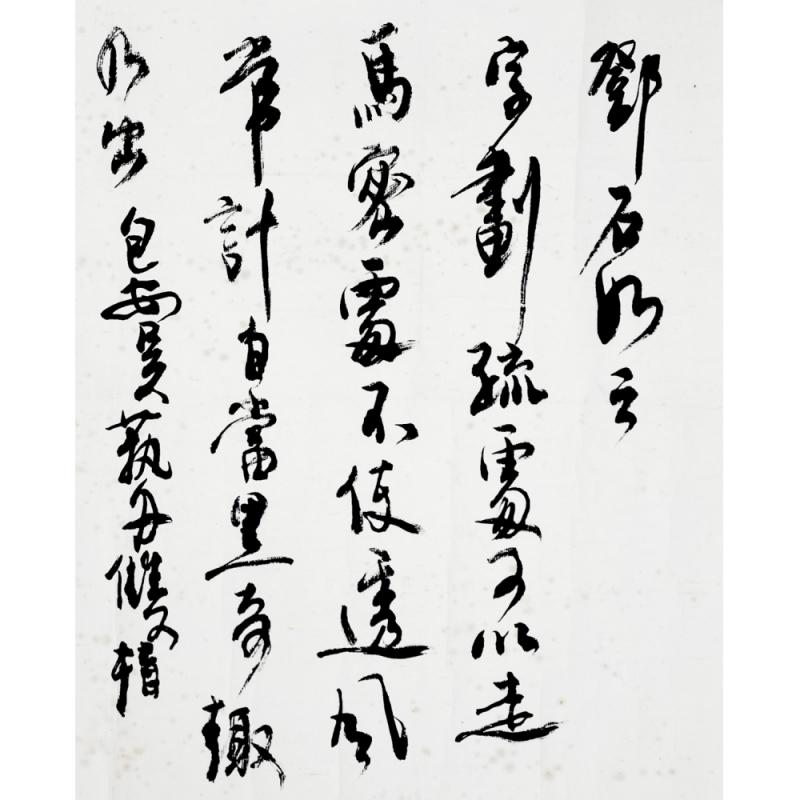 鄧石如云
字劃疏處可以走
馬密處不使透風
常計白當黑奇趣
乃出 包安吳蓺舟雙楫